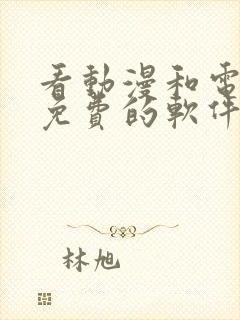 看動漫和電
免費的軟件
林旭